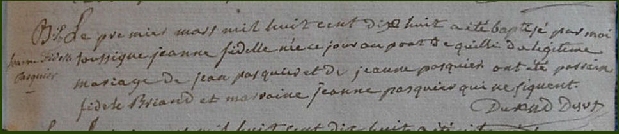 B. Le premier mars mil huit cent dix huit a été baptisé par moi
jeanne fidelle
pasquier
soussigné jeanne fidelle née ce jour au pont de quelli du légitime
mariage de jean pasquier et de jeanne pasquier ont été parrain
fidele Briand et marraine jeanne pasquier qui ne signent.
Durand
mil huit cent dix huit a été